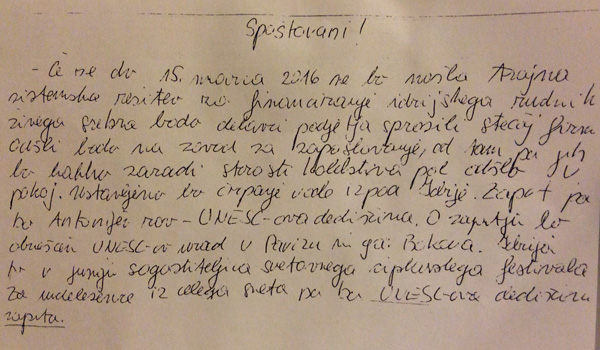 Spoštovani!
- Če se do 15. marca 2016 ne bo našla trajna
sistemska rešitev za financiranje idrijskega rudnika
živega srebra bodo delavci podjetja sprožili stečaj firme
Odšli bodo na zavod za zaposlovanje, od tam pa jih
bo lahko zaradi starosti kolektiva pol odšlo v
pokoj. Ustavljeno bo črpanje vode izpod Idrije. Zaprt pa
bo Antonijev rov - UNESC-ova dediščina. O zaprtju bo
obveščen UNESC-ov urad v Parizu in ga. Bokova. Idrija
bo v juniju sogostiteljica svetovnega čipkarskega festivala
za udeležence iz celega sveta pa bo UNESC-ova dediščina
zaprta.